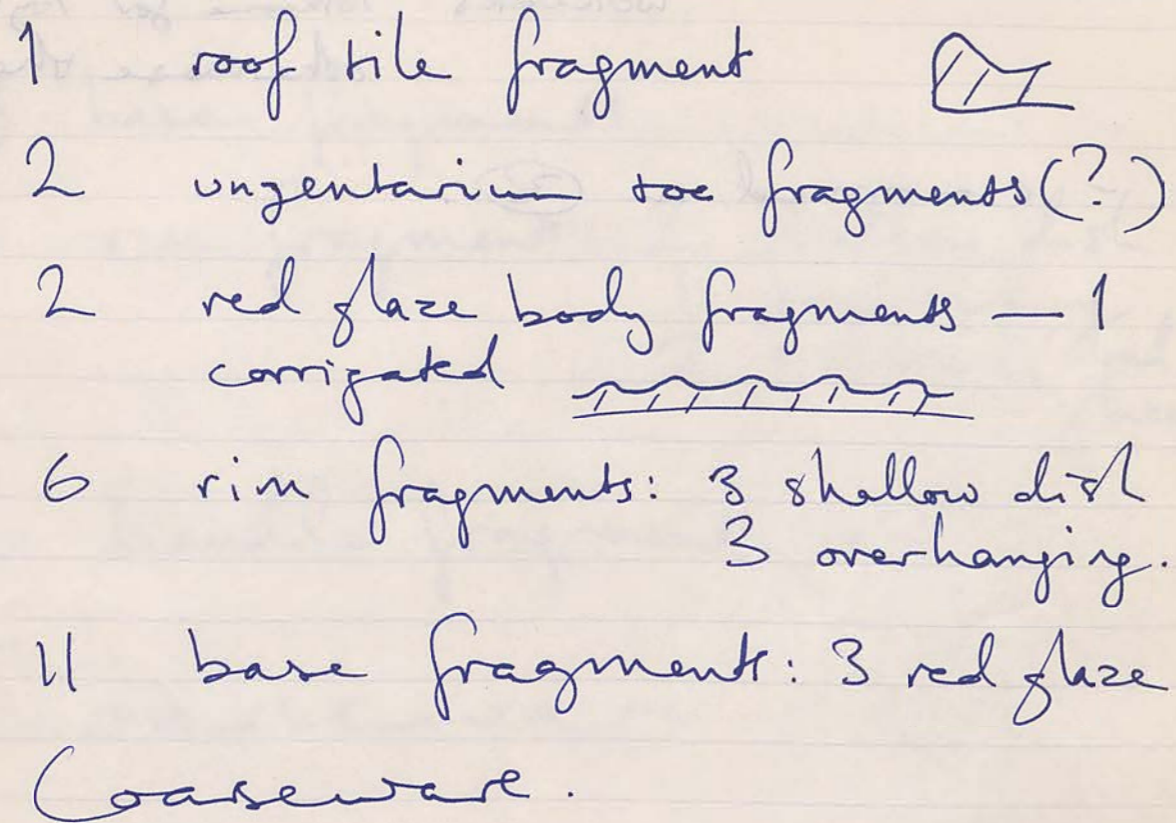 1 roof tile fragment
2 ungentarium toe fragments(?)
2 red glaze body fragments — 1
corrigated
6 rim fragments: 3 shallow dish
3 overhanging.
11 base fragments: 3 red glaze
Coarseware.